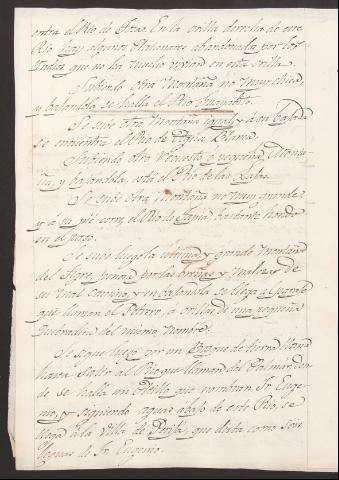 entra el Rio de Tora. En la orilla derecha de este
Rio hay algunos Platanares abandonados por los
Indios que no ha mucho vivian en esta orilla.
Subiendo otra Montaña no muy chica,
y bajandola se halla el Rio Guayabito.
Se sube otra Montaña igual y a su bajada
se encuentra el Rio de Agua Blanca.
Subiendo otro Repecho o pequeña Monta-
ña, y bajandola, está el Rio de las
Se sube otra Montaña no muy grande,
y á su pié corre el Rio de bastante hondo
en el paso.
Se sube luego la y grande Montaña
del Tigre, penosa por las breñas y malezas de
su mal camino, y en bajandola se llega al parage
que llaman el Potrero, á orillas de una pequeña
Quebradita del mismo nombre.
Se sigue luego por un Bosque de tierra llana
hasta salir al Rio que llaman del Palmar, don-
de se halla un Sitillo que nombran Sn. Euge-
nio, y siguiendo aguas abajo de este Rio, se
llega á la Villa de que dista como seis
leguas de Sn. Eugenio.